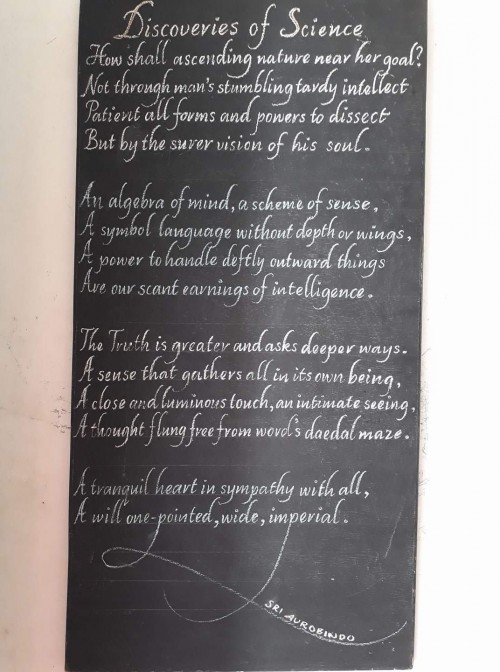 Discoveries of Science
How shall ascending nature near her goal?
Not through man's stumbling tardy intellect
Patient all forms and powers to dissect
But by the surer vision of his soul.
An algebra of mind, a scheme of sense,
A symbol language without depth or wings,
A power to handle deftly outward things
Are our scant earnings of intelligence.
The Truth is greater and asks deeper ways.
A sense that gathers all in its own being,
A close and luminous touch, an intimate seeing,
A thought flung free from word's daedal maze.
A tranquil heart in sympathy with all,
A will one-pointed, wide, imperial.
SRI AUROBINDO